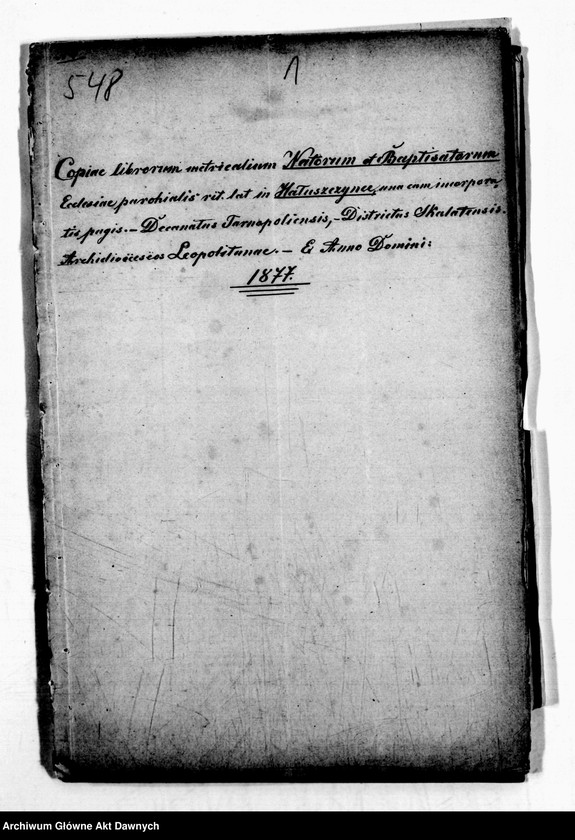 548
1
Copiae librorum metricalium Natorum et Baptisatorum
Ecclesiae parochialis rit. lat in Hałuszczyńce, una cum incorpora
tis pagis. – Decanatus Tarnopoliensis, – Districtus Skalatensis.
Archidioëceseos Leopolitanae. – Ei Anno Domini:
1877.
Archiwum Główne Akt Dawnych